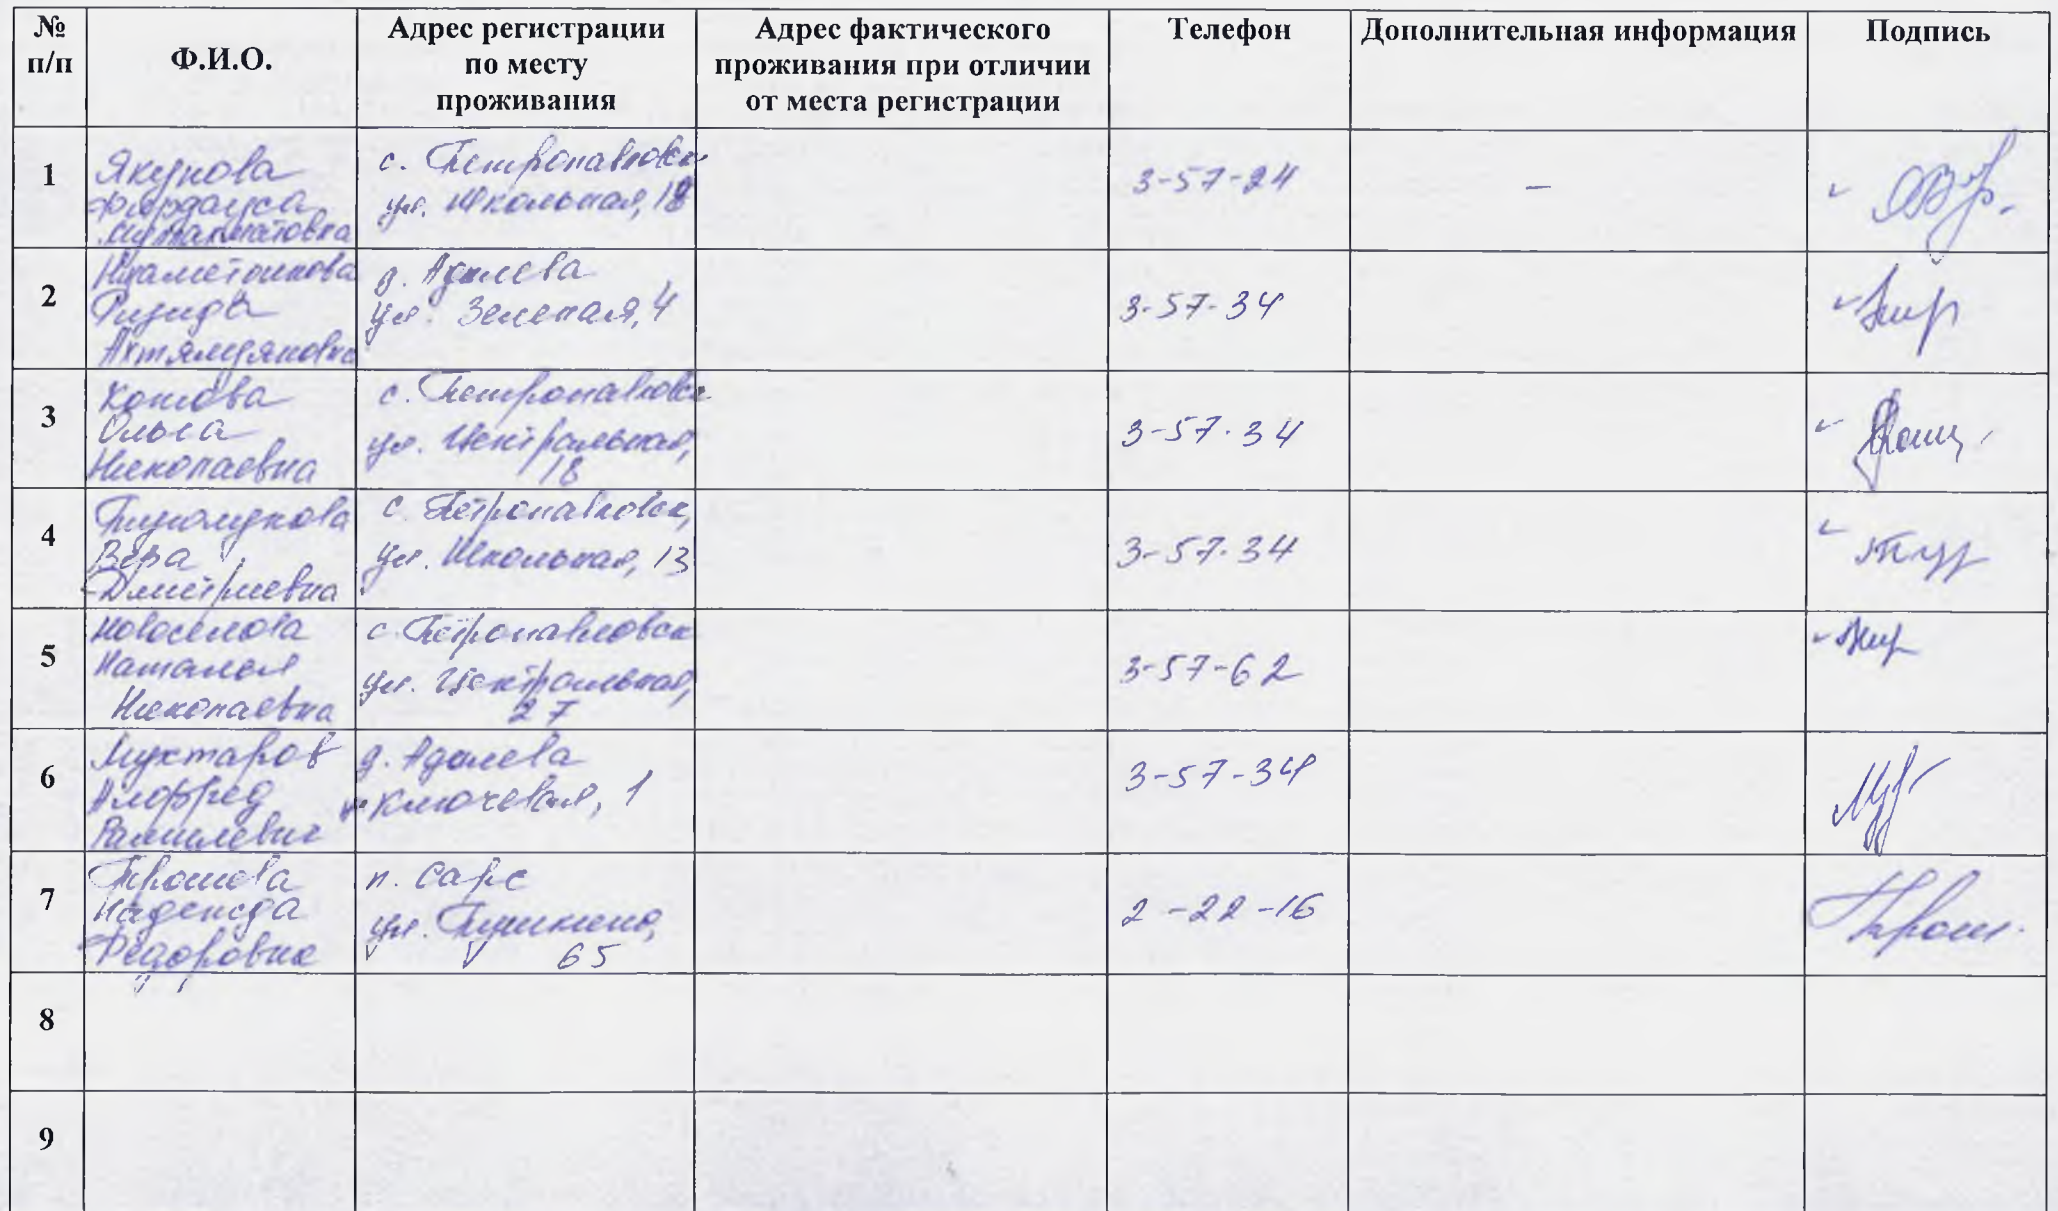 № п/п
Ф.И.О.
Адрес регистрации по месту проживания
Адрес фактического проживания при отличии от места регистрации
Телефон
Дополнительная информация
Подпись
1
Якупова
Фирдауса
с. Петропавловск
ул. Школьная, 18
3-57-24
-
2
д. Адилева
ул. Зеленая, 4
3-57-34
3
Ольга
Николаевна
с. Петропавловск
ул. Центральная,
18
3-57-34
4
Вера
Дмитриевна
с. Петропавловск,
ул. Школьная, 13
3-57-34
5
Новоселова
Наталья
Николаевна
с. Петропавловск
ул. Центральная,
27
3-57-62
6
Мухтаров
Альфред
Рамилевич
д. Адилева
Ключевая, 1
3-57-34
7
Трошева
Надежда
Федоровна
п. Сарс
ул. Пушкина,
65
2-22-16
Трош.
8
9